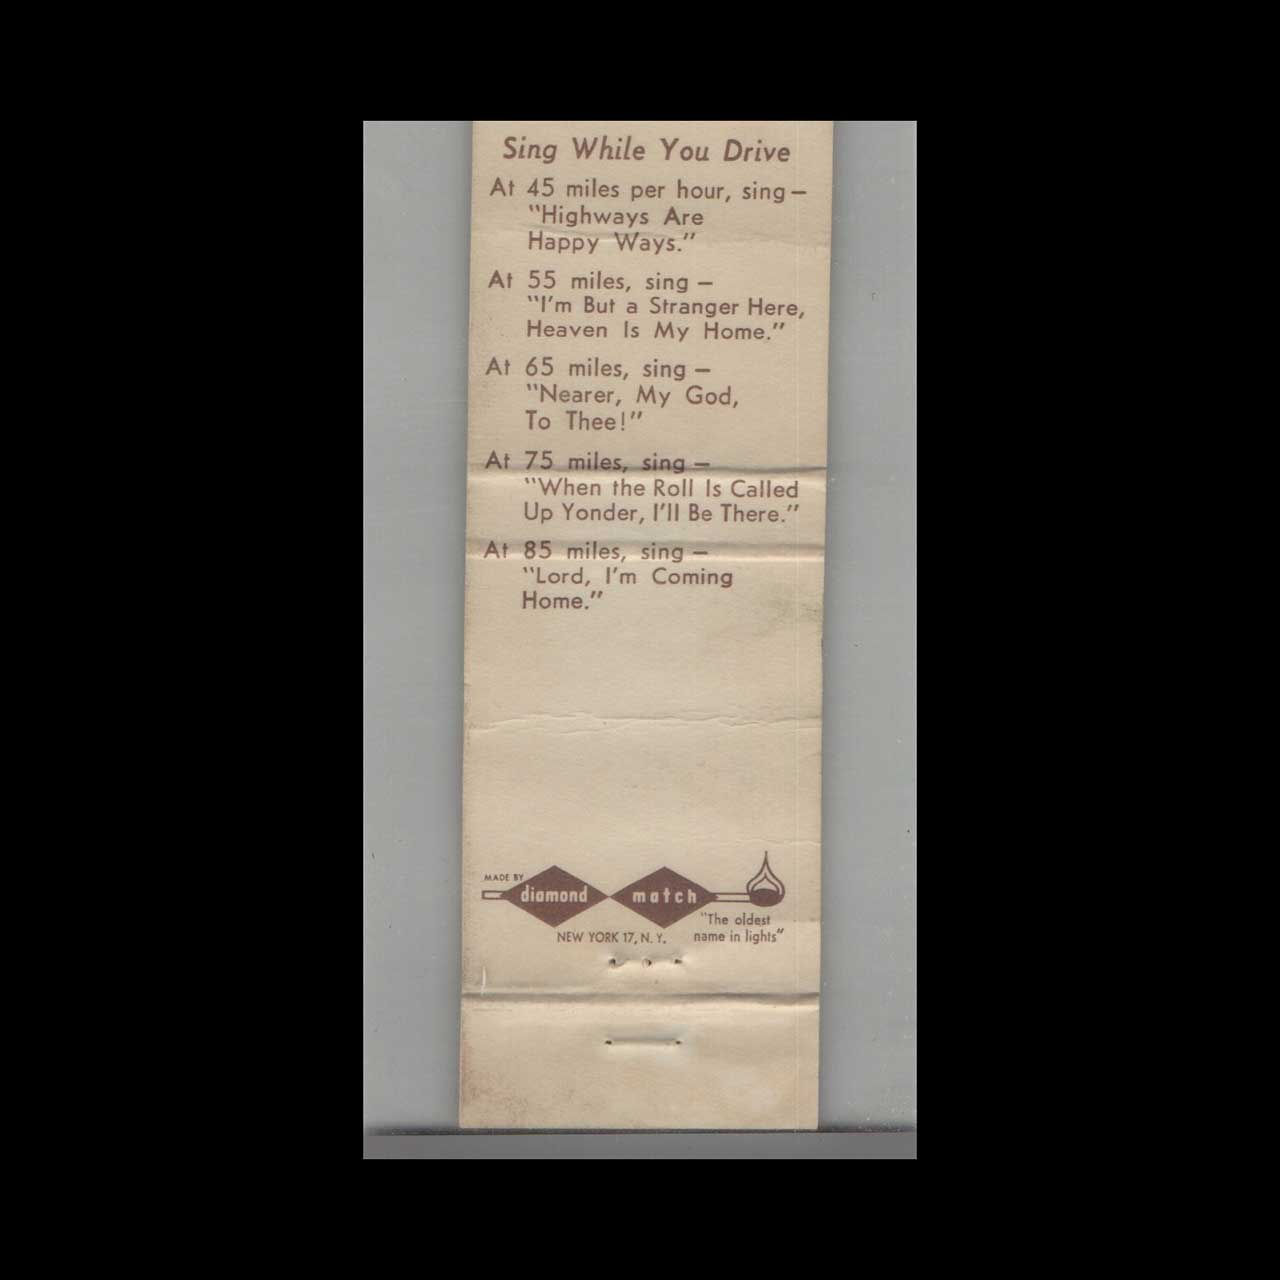 Sing While You Drive
At 45 miles per hour, sing—
"Highways Are
Happy Ways."
At 55 miles, sing—
"I'm But a Stranger Here,
Heaven Is My Home."
At 65 miles, sing—
"Nearer, My God,
To Thee!"
At 75 miles, sing—
"When the Roll Is Called
Up Yonder, I'll Be There."
At 85 miles, sing—
"Lord, I'm Coming
Home."
MADE BY
diamond match
NEW YORK 17, N. Y.
"The oldest
name in lights"